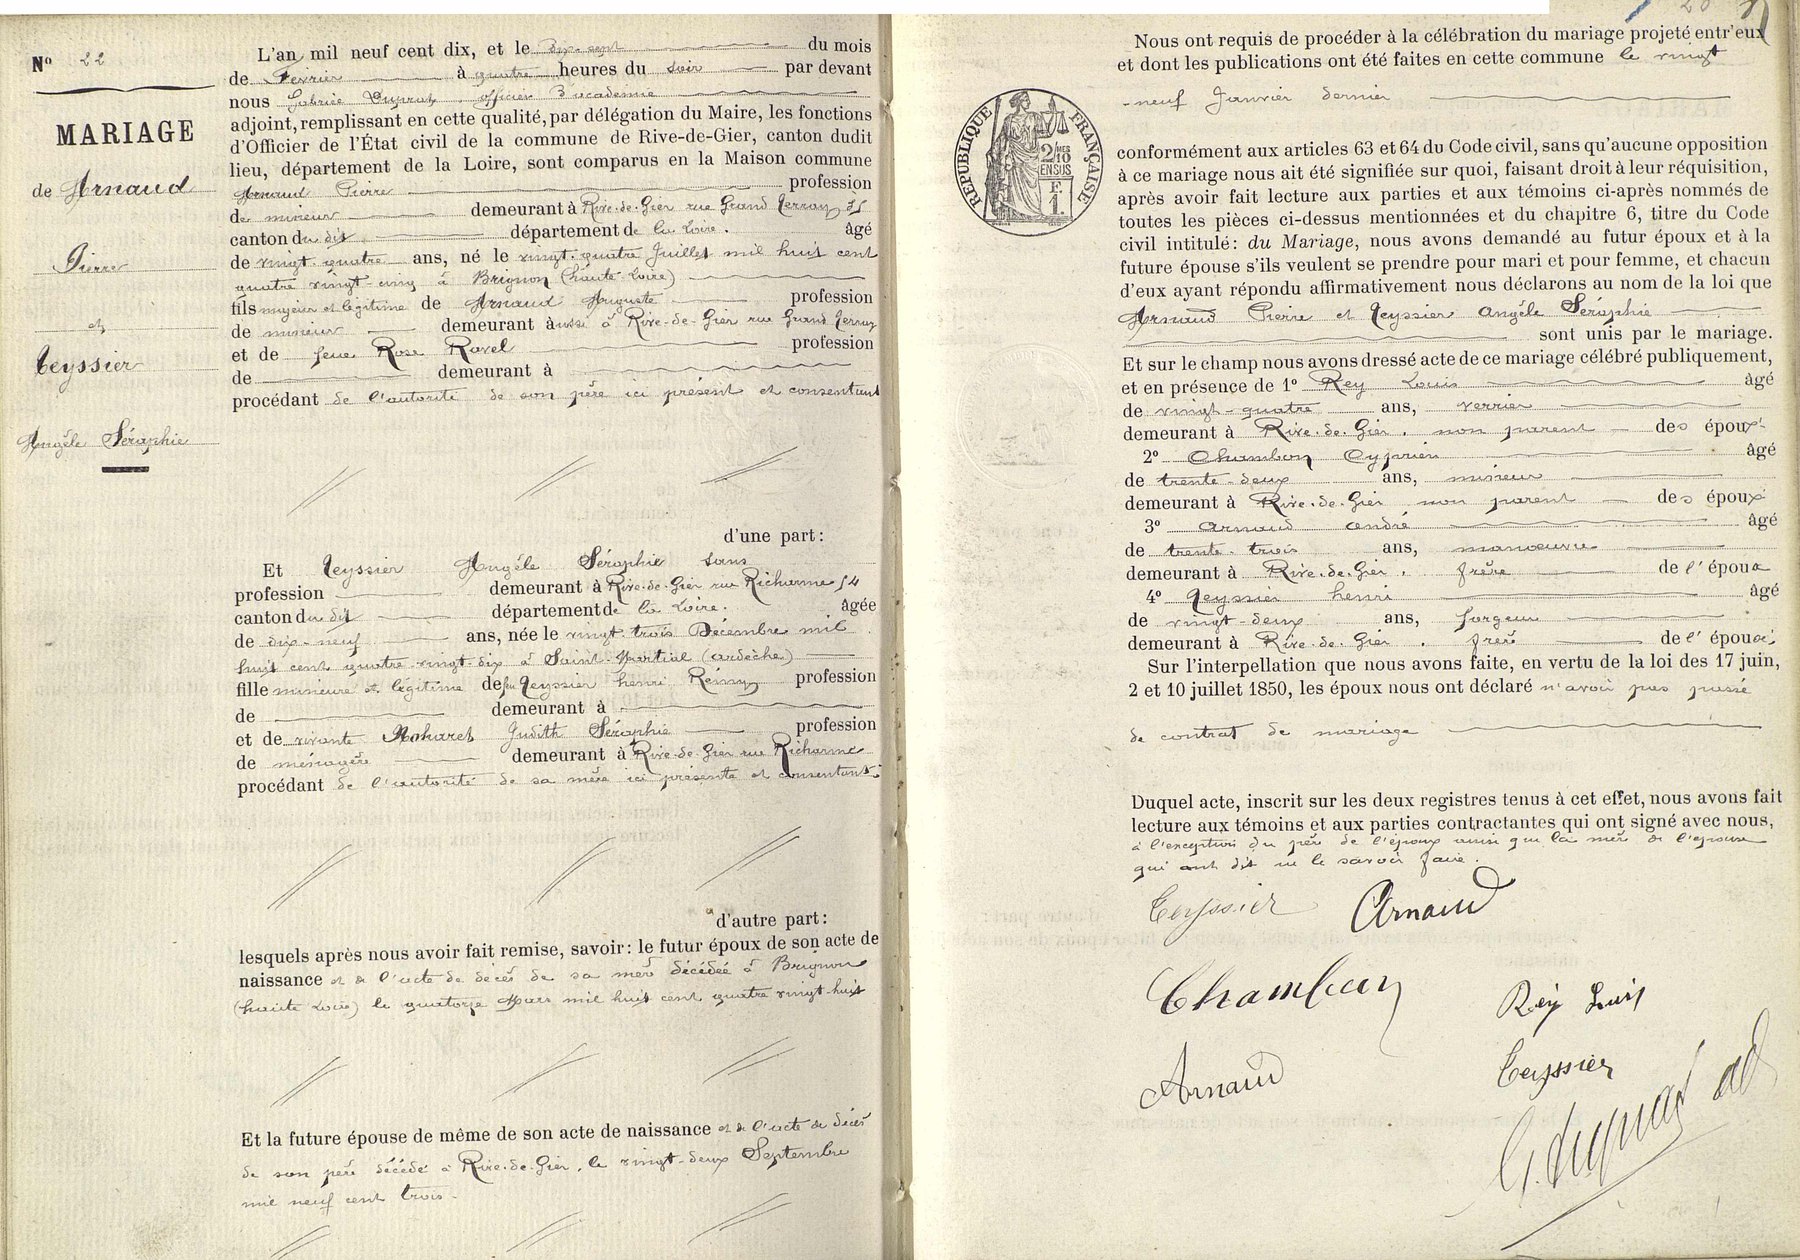 N° 22
MARIAGE
de Arnaud
Pierre
et
Teyssier
Angèle Séraphie
L'an mil neuf cent dix, et le dix-sept du mois
de Février à quatre heures du soir par devant
nous Gabriel Duprat, officier d'académie
adjoint, remplissant en cette qualité, par délégation du Maire, les fonctions
d'Officier de l'État civil de la commune de Rive-de-Gier, canton dudit
lieu, département de la Loire, sont comparus en la Maison commune
Arnaud Pierre profession
de mineur demeurant à Rive-de-Gier rue Grand Terray
canton du dit département de la Loire. âgé
de vingt-quatre ans, né le vingt-quatre Juillet mil huit cent
quatre vingt-cinq à Brignon (haute Loire)
fils majeur et légitime de Arnaud Auguste profession
de mineur demeurant aussi à Rive-de-Gier rue Grand Terray
et de feue Rose Ravel profession
de demeurant à
procédant de l'autorité de son père ici présent et consentant
d'une part:
Et Teyssier Angèle Séraphie sans
profession demeurant à Rive-de-Gier rue Richarme 54
canton du dit département de la Loire. âgée
de dix-neuf ans, née le vingt-trois Décembre mil
huit cent quatre-vingt-dix à Saint-Martial (ardèche)
fille mineure et légitime de feu Teyssier henri Rémy profession
de demeurant à
et de vivante Moharet Judith Séraphie profession
de ménagère demeurant à Rive-de-Gier rue Richarme
procédant de l'autorité de sa mère ici présente et consentante
d'autre part:
lesquels après nous avoir fait remise, savoir: le futur époux de son acte de
naissance et de l'acte de décès de sa mère décédée à Brignon
(haute Loire) le quatorze Mars mil huit cent quatre vingt-huit
Et la future épouse de même de son acte de naissance et de l'acte de décès
de son père décédé à Rive-de-Gier, le vingt-deux Septembre
mil neuf cent trois.
Nous ont requis de procéder à la célébration du mariage projeté entr'eux
et dont les publications ont été faites en cette commune le vingt
-neuf Janvier dernier
RÉPUBLIQUE FRANÇAISE
2/10 EN SUS
1 F.
conformément aux articles 63 et 64 du Code civil, sans qu'aucune opposition
à ce mariage nous ait été signifiée sur quoi, faisant droit à leur réquisition,
après avoir fait lecture aux parties et aux témoins ci-après nommés de
toutes les pièces ci-dessus mentionnées et du chapitre 6, titre du Code
civil intitulé: du Mariage, nous avons demandé au futur époux et à la
future épouse s'ils veulent se prendre pour mari et pour femme, et chacun
d'eux ayant répondu affirmativement nous déclarons au nom de la loi que
Arnaud Pierre et Teyssier Angèle Séraphie
sont unis par le mariage.
Et sur le champ nous avons dressé acte de ce mariage célébré publiquement,
et en présence de 1° Rey Louis âgé
de vingt-quatre ans, verrier
demeurant à Rive-de-Gier, non parent des époux
2° Chambon Cyprien âgé
de trente-deux ans, mineur
demeurant à Rive-de-Gier non parent des époux
3° Arnaud andré âgé
de trente-trois ans, manœuvre
demeurant à Rive-de-Gier, frère de l'époux
4° Teyssier henri âgé
de vingt-deux ans, forgeur
demeurant à Rive-de-Gier, frère de l'épouse
Sur l'interpellation que nous avons faite, en vertu de la loi des 17 juin,
2 et 10 juillet 1850, les époux nous ont déclaré n'avoir pas passé
de contrat de mariage
Duquel acte, inscrit sur les deux registres tenus à cet effet, nous avons fait
lecture aux témoins et aux parties contractantes qui ont signé avec nous,
à l'exception du père de l'époux ainsi que la mère de l'épouse
qui ont dit ne le savoir faire.
Teyssier Arnaud
Chambon
Rey Louis
Arnaud
Teyssier
G. Duprat ad